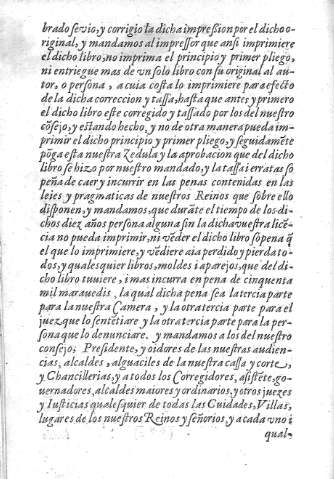 brado se vio, y corrigio la dicha impreſsion por el dicho o-
riginal, y mandamos al impreſſor que anſi imprimiere
el dicho libro, no imprima el principio y primer pliego,
ni entriegue mas de vn ſolo libro con ſu original al au-
tor, o perſona, a cuia coſta lo imprimiere para efecto
de la dicha correccion y taſſa, haſta que antes y primero
el dicho libro eſte corregido y taſſado por los del nueſtro
cõſejo, y eſtando hecho, y no de otra manera pueda im-
primir el dicho principio y primer pliego, y ſeguidamẽte
põga eſta nueſtra Zedula y la aprobacion que del dicho
libro ſe hizo por nueſtro mandado, y la taſſa i erratas ſo
pena de caer y incurrir en las penas contenidas en las
leies y pragmaticas de nueſtros Reinos que ſobre ello
diſponen, y mandamos, que durãte el tiempo de los di-
chos diez años perſona alguna ſin la dicha nueſtra licẽ-
cia no pueda imprimir, ni vẽder el dicho libro ſo pena q̃
el que lo imprimiere, y vẽdiere aia perdido y pierda to-
dos, y qualesquier libros, moldes i aparejos, que del di-
cho libro tuviere, i mas incurra en pena de cinquenta
mil maravedis, la qual dicha pena ſea la tercia parte
para la nueſtra Camera, y la otra tercia parte para el
juez que lo ſentẽtiare y la otra tercia parte para la per-
ſona que lo denunciare. y mandamos a los del nueſtro
conſejo, Preſidente, y oidores de las nueſtras audien-
cias, alcaldes, alguaciles de la nueſtra caſſa y corte,
y Chancillerias, y a todos los Corregidores, aſiſtẽte, go-
uernadores, alcaldes maiores y ordinarios, y otros juezes
y Iuſticias qualeſquier de todas las Cuidades, Villas,
lugares de los nueſtros Reinos y ſeñorios, y a cada vno i
qual-